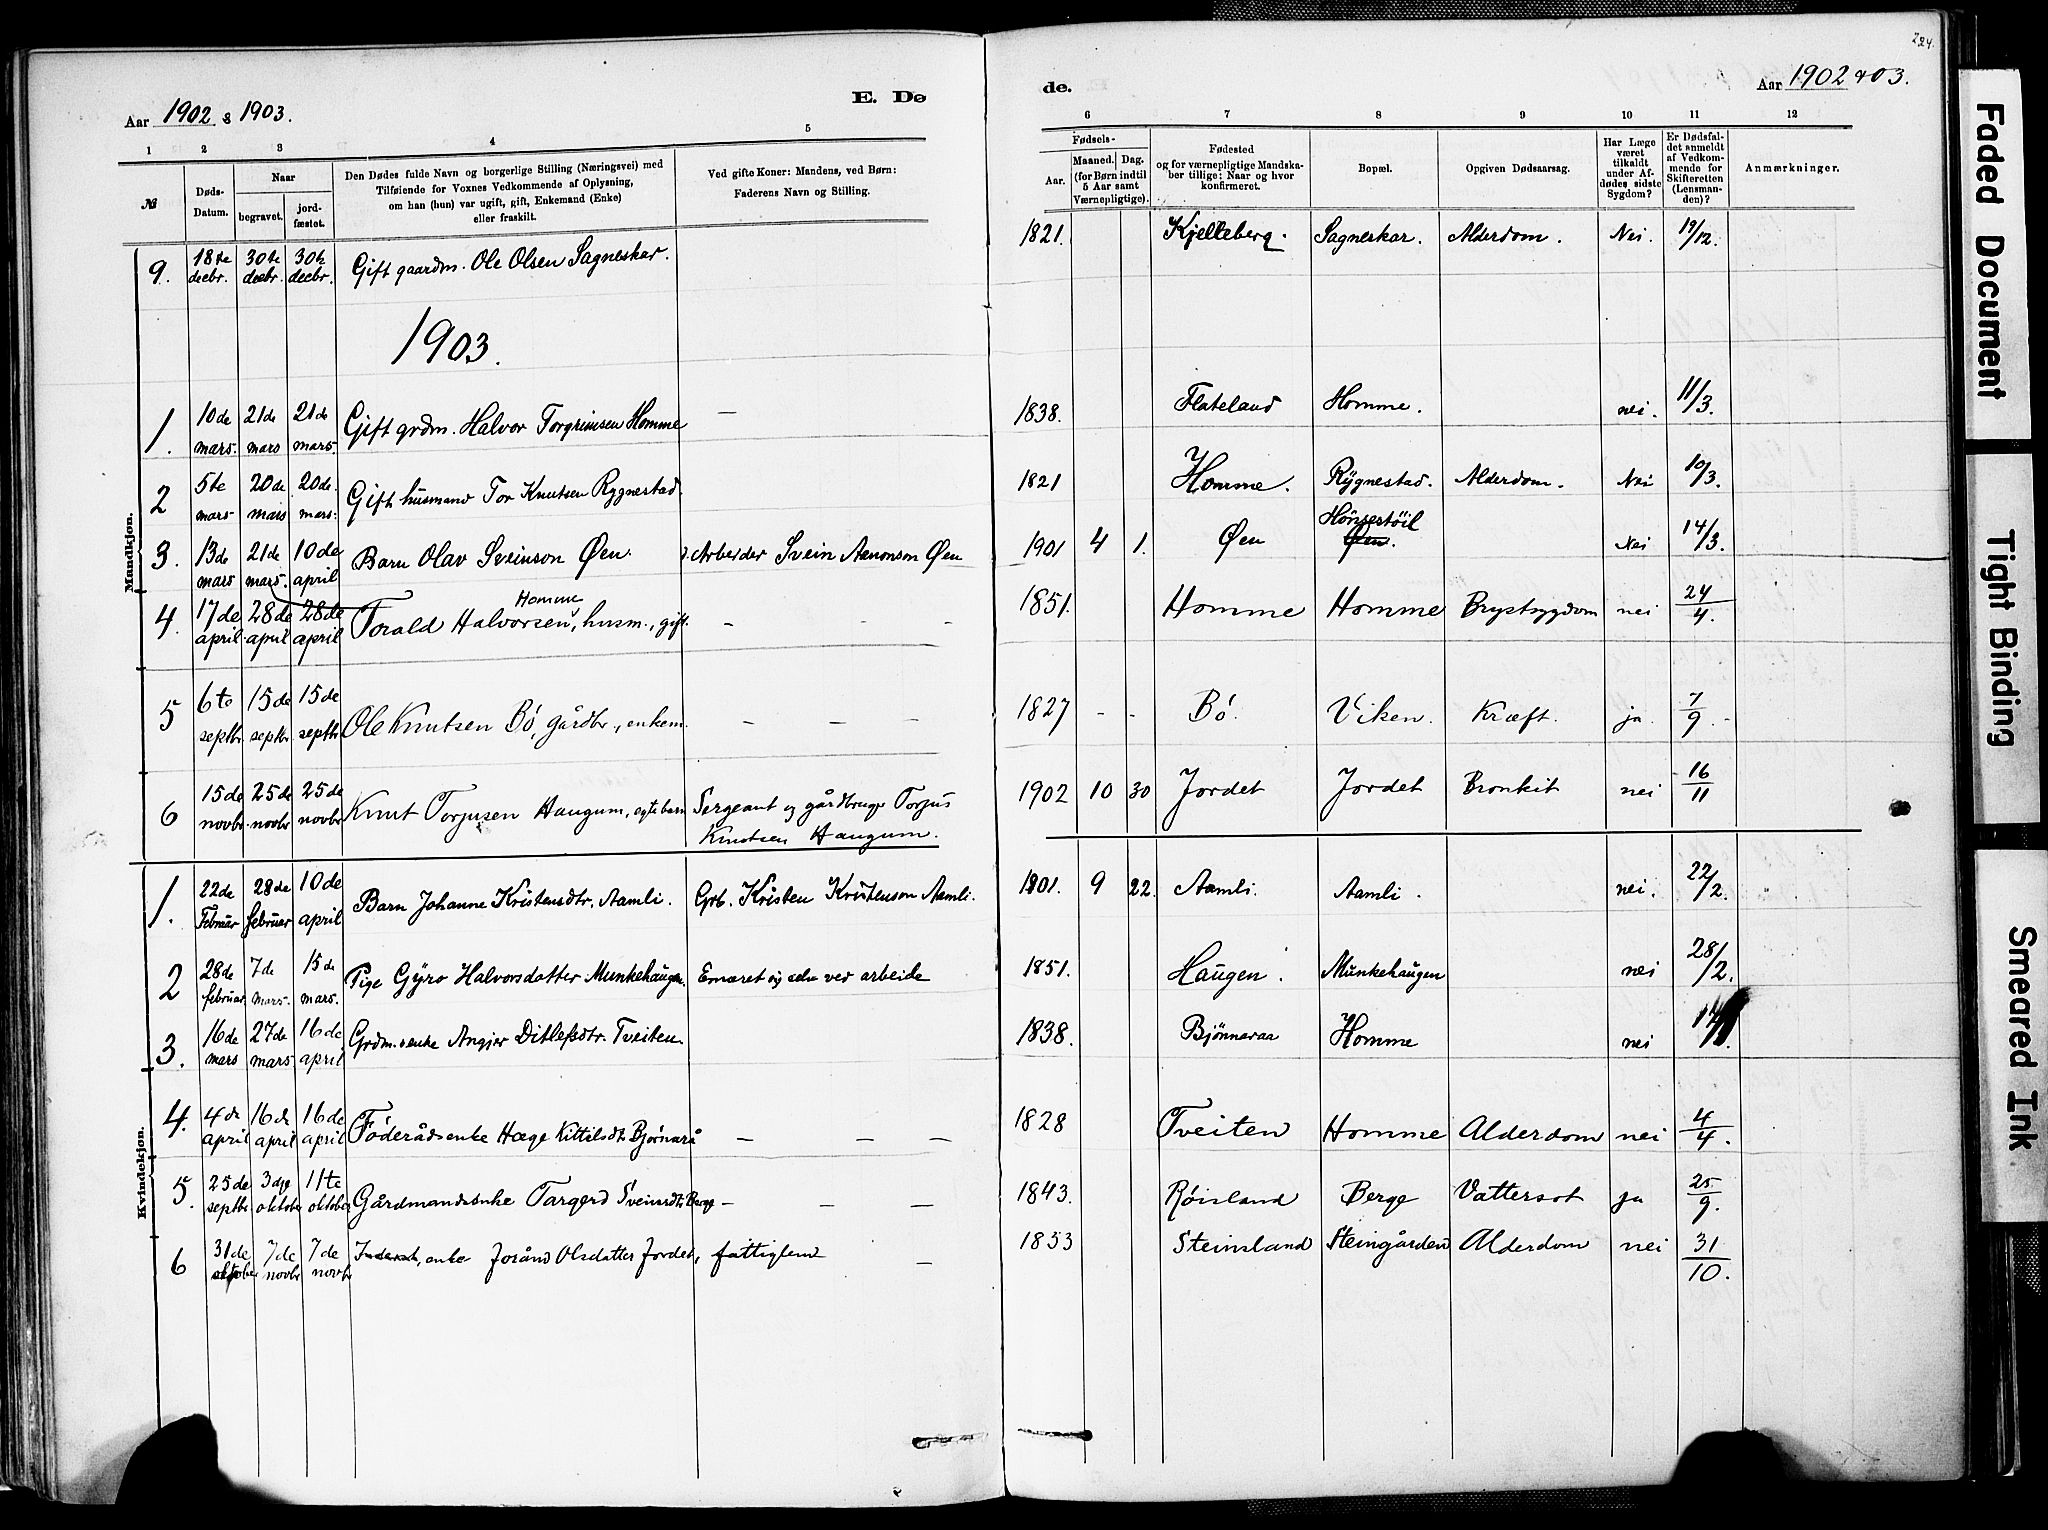 224.
Aar 1902 & 1903.
E. Dø
de.
Aar 1902 & 03.
1 2 3 4 5 6 7 8 9 10 11 12
№
Døds-Datum.
Naar
begravet.
jordfæstet.
Den Dødes fulde Navn og borgerlige Stilling (Næringsvei) med
Tilføiende for Voxnes Vedkommende af Oplysning,
om han (hun) var ugift, gift, Enkemand (Enke)
eller fraskilt.
Ved gifte Koner: Mandens, ved Børn:
Faderens Navn og Stilling.
Fødsels-
Aar.
Maaned. Dag.
(for Børn indtil
5 Aar samt
Værnepligtige).
Fødested
og for værnepligtige Mandskaber tillige: Naar og hvor
konfirmeret.
Bopæl.
Opgiven Dødsaarsag.
Har Læge
været
tilkaldt
under Afdødes sidste
Sygdom?
Er Dødsfaldet anmeldt
af Vedkommende for
Skifteretten
(Lensmanden)?
Anmærkninger.
9. 18te decbr. 30te decbr. 30te decbr. Gift gaardm. Ole Olsen Sagneskar. 1821. Kjelleberg. Sagneskar. Alderdom. Nei. 19/12.
1903.
Mandkjøn.
1. 10de mars. 21de mars 21de mars. Gift grdm. Halvor Torgrimsen Homme — 1838. Flateland Homme. nei. 11/3.
2 5te mars 20de mars 20de mars. Gift husmand Tor Knutsen Rygnestad. 1821 Homme. Rygnestad. Alderdom. Nei 10/3.
3. 13de mars 21de mars. 10de april Barn Olav Sveinson Øen. Arbeider Svein Aanonson Øen 1901 4 1. Øen Hönsestöil Øen. Nei 14/3.
4. 17de april 28de april 28de april Torald Halvorsen Homme, husm., gift. — — — 1851. Homme Homme Brystsygdom nei 24/4.
5 6te septbr. 15de septbr 15de septbr Ole Knutsen Bö, gårdbr., enkem. — — — 1827 - - Bö. Viken. Kræft. ja. 7/9.
6 15de novbr. 25de novbr 25de novbr Knut Torjusen Haugum, egte barn Sergeant og gårdbruger Torjus Knutsen Haugum. 1902 10 30 Jordet Jordet Bronkit nei 16/11
Kvindekjøn.
1. 22de Februar 28de februar 10de april Barn Johanne Kristensdtr. Aamli. Grb. Kristen Kristenson Aamli. 1801. 9 22. Aamli. Aamli. nei. 22/2.
2 28de februar 7de mars. 15de mars. Pige Gyro Halvorsdatter Munkehaugen. Ernæret sig selv ved arbeide 1851. Haugen. Munkehaugen nei 28/2.
3. 16de mars 27de mars 16de april Grdm. enke Angjer Ditlefsdtr. Tveiten. 1838. Bjönnaraa Homme nei
4. 4de april 16de april 16de april Föderådsenke Hæge Kittilsdtr Bjørnarå — — — 1828 Tveiten Homme Alderdom nei 4/4.
5. 25de septbr 3dje oktober 11te oktober Gårdmandsenke Targerd Sveinsdtr Berge — — — 1843. Röisland Berge Vattersot ja 25/9.
6 31de oktober 7de novbr 7de novbr Inderst, enke Joránd Olsdatter Jordet, fattiglem — 1853 Steinsland Steingården Alderdom nei 31/10.
Faded Document
Tight Binding
Smeared Ink